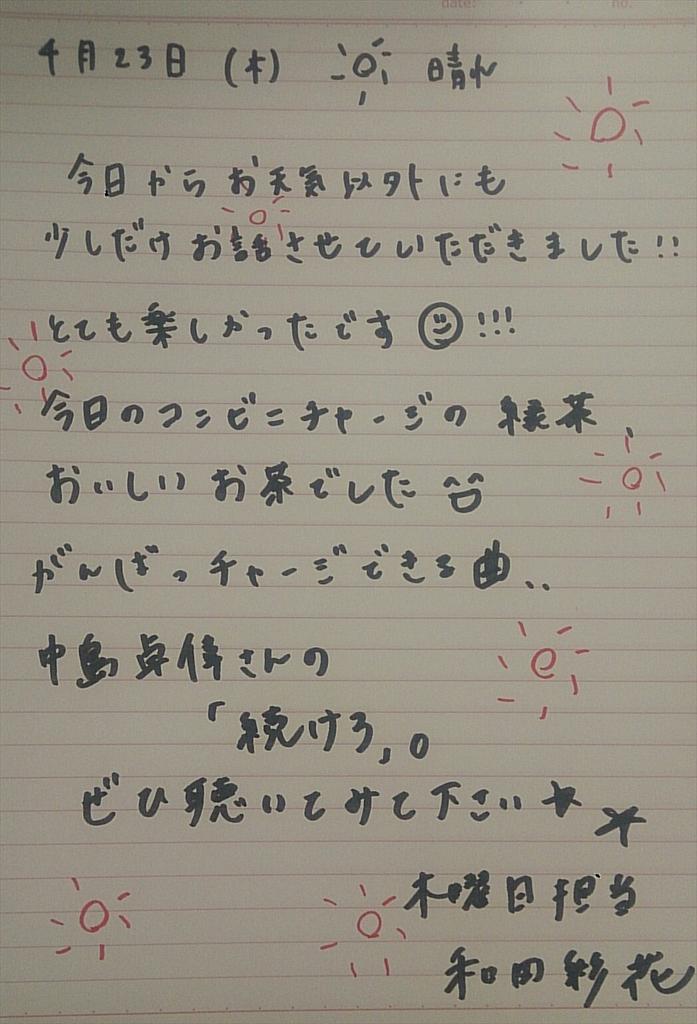 date: no.
4月23日 (木) 晴れ
今日からお天気以外にも
少しだけお話させていただきました!!
とても楽しかったです!!!
今日のコンビニチャージの緑茶、
おいしいお茶でした
がんばっチャージできる曲..
中島卓偉さんの
「続けろ」。
ぜひ聴いてみて下さい★★
木曜日担当
和田彩花